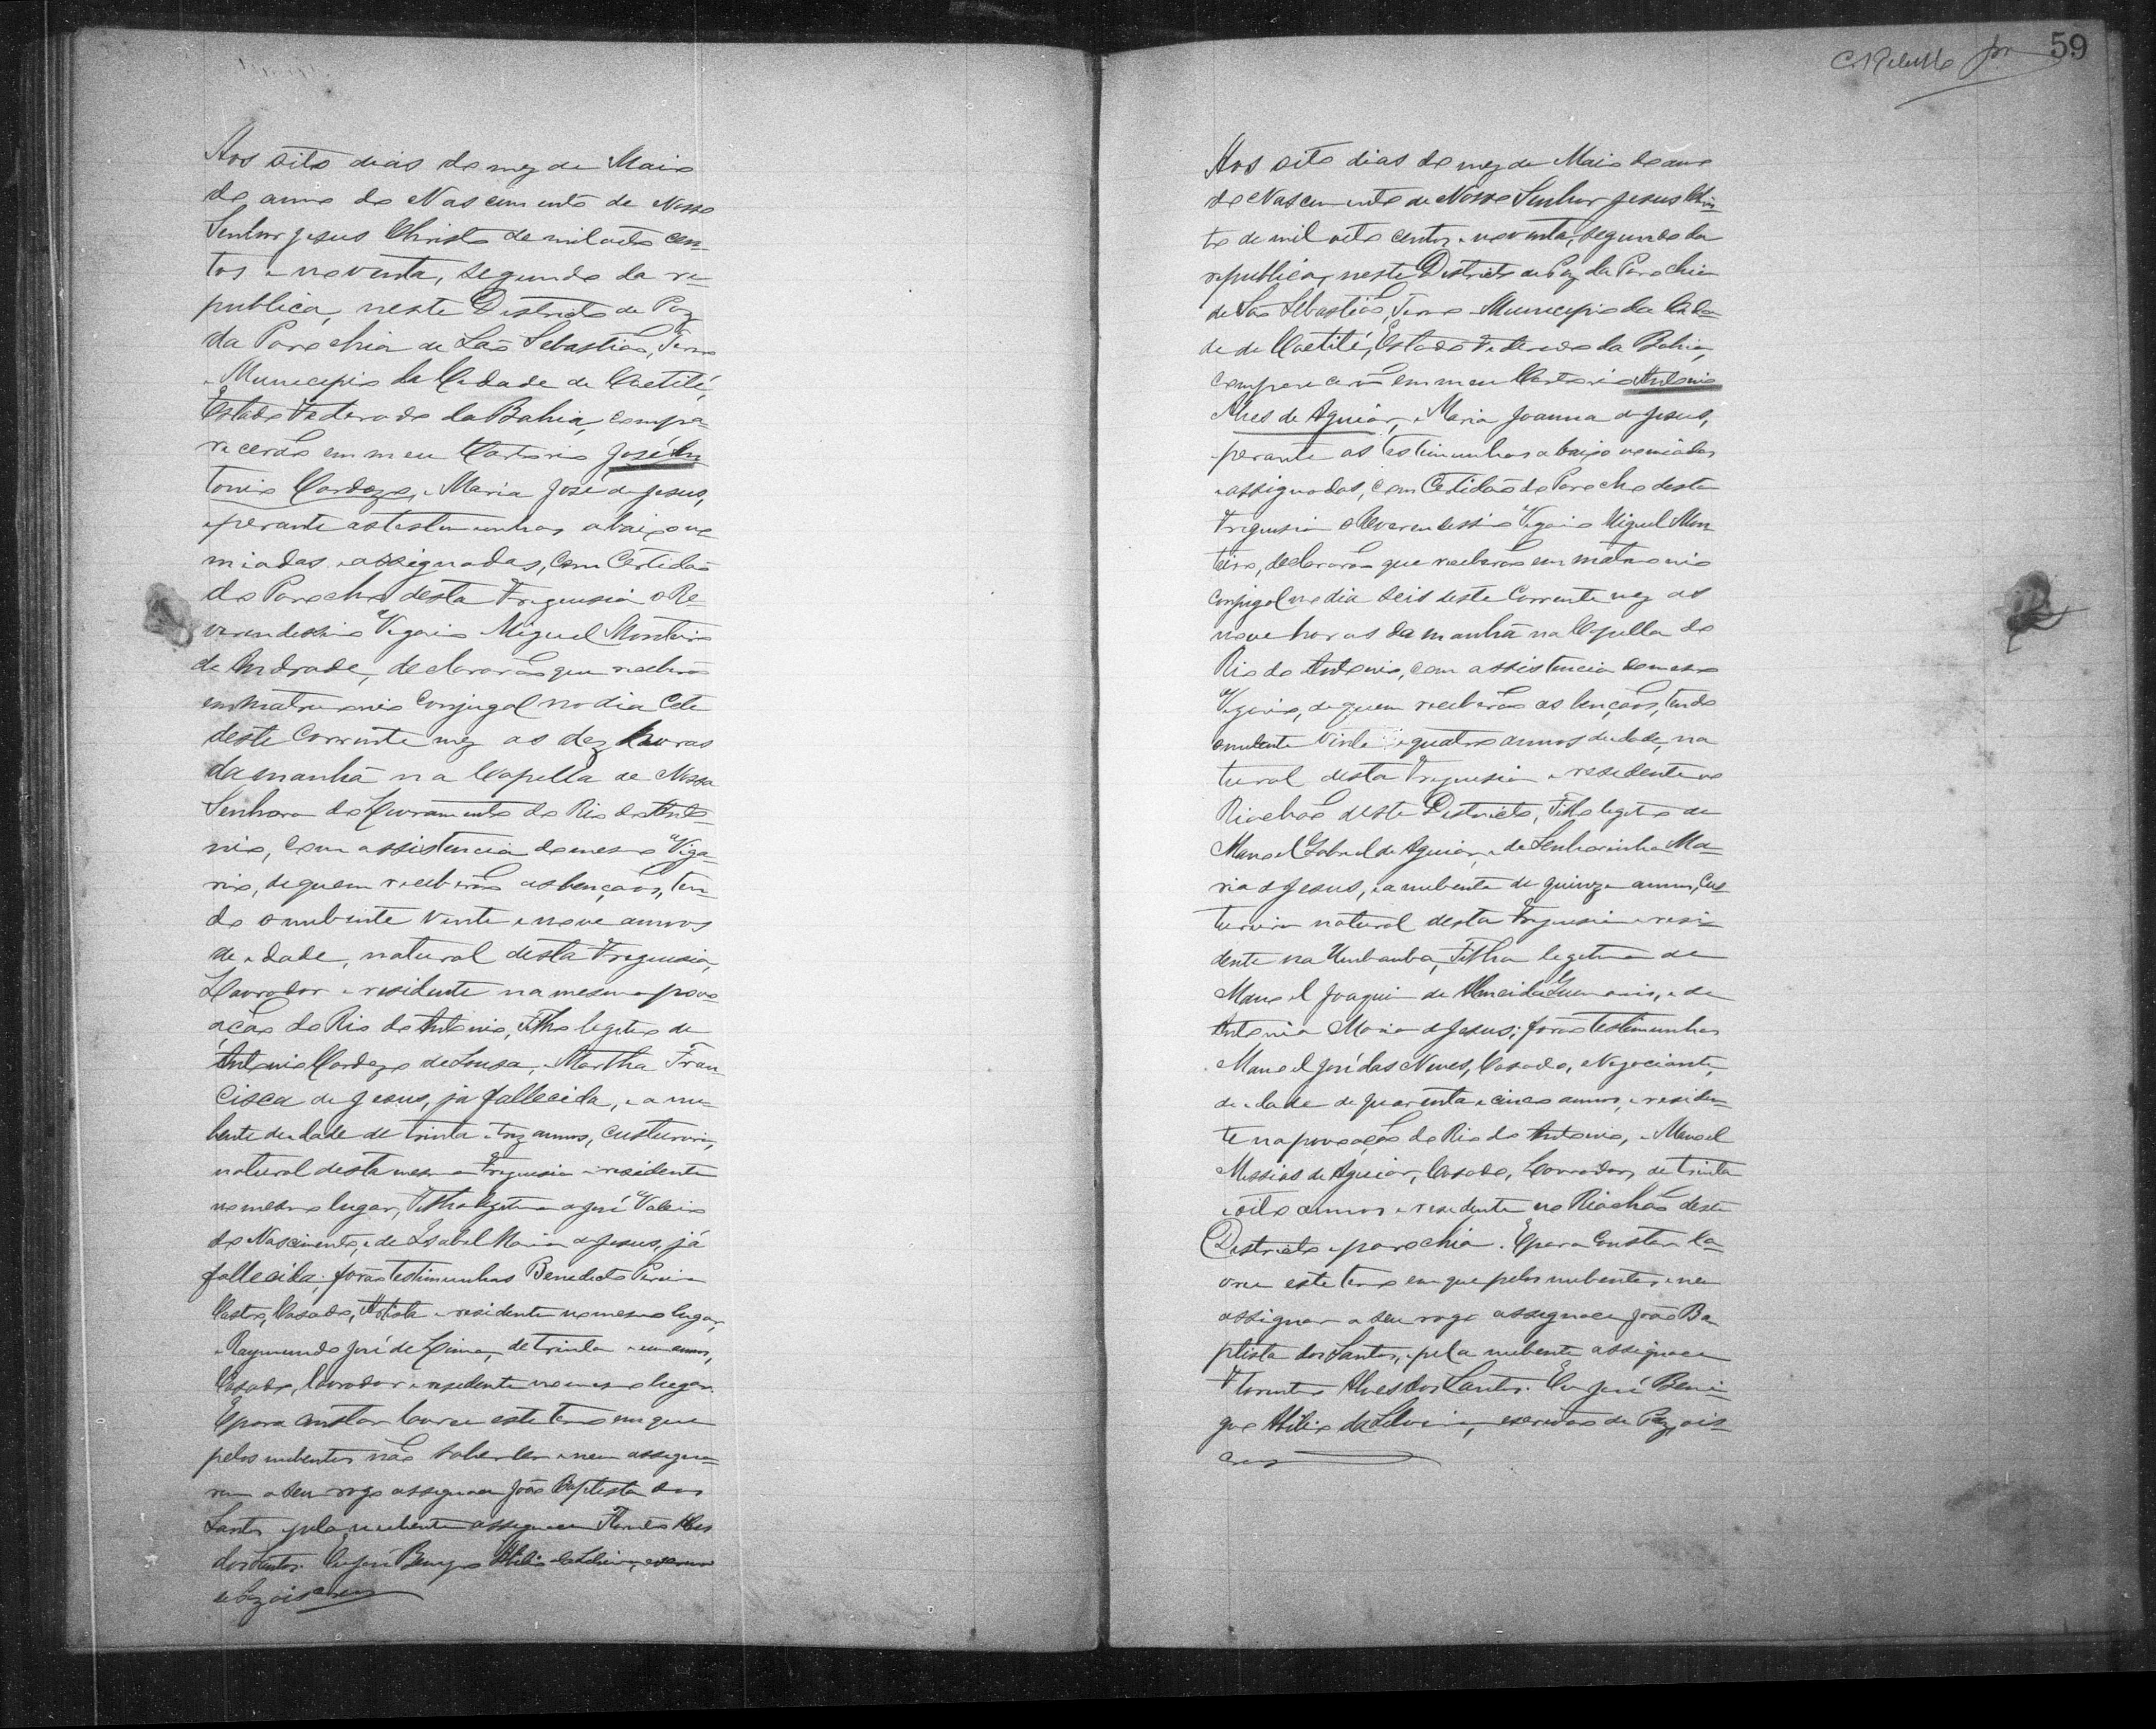 Aos oito dias do mez de Maio
do anno do Nascimento de Nosso
Senhor Jesus Christo de mil oito cen-
tos e noventa, segundo da re-
publica, neste Districto de Paz
da Parochia de São Sebastião, Termo
e Municipio da Cidade de Caetité,
Estado Federado da Bahia, compa-
recerão em meu Cartorio José An
tonio Cardozo, e Maria José de Jesus,
e perante as testemunhas abaixo no
miadas e assignadas, com Certidão
do Parocho desta Freguesia o Re-
verendissimo Vigario Miguel Monteiro
de Andrade, declararão que receberão
em matrimonio Conjugal no dia Cete
deste Corrente mez as dez horas
da manhã na Capella de Nossa
Senhora do Livramento do Rio do Anto-
nio, com assistencia do mesmo Viga-
rio, de quem receberão as bençãos, ten-
do o nubente vinte e nove annos
de idade, natural desta Freguesia,
Lavrador e residente na mesma povo-
ação do Rio do Antonio, Filho legitimo de
Antonio Cardozo de Sousa, e Martha Fran-
cisca de Jesus, já fallecida, e a nu-
bente de idade de trinta e trez annos, custureira,
natural desta mesma Freguesia e residente
no mesmo lugar, Filha legitima de José Valerio
do Nascimento, e de Isabel Maria de Jesus, já
fallecida; forão testimunhas Benedicto Pereira
Castro, Casado, Artista e residente no mesmo lugar,
e Raymundo José de Lima, de trinta e um annos,
Casado, lavrador e residente no mesmo lugar.
E para constar lavrei este termo em que
pelos nubentes não saber ler e nem assigna-
rem a seu rogo assignou João Baptista dos
Santos e pela nubente assignou Florentio Alves
dos Santos. Eu José Benigno da Silveira, escrivão
de Paz o is crevy
59
Aos oito dias do mez de Maio do anno
do Nascimento de Nosso Senhor Jesus Chris-
to de mil oito centos e noventa, segundo da
republica, neste Districto de Paz da Parochia
de São Sebastião, Termo e Municipio da Cida
de de Caetité, Estado Federado da Bahia,
comparecerão em meu Cartorio Antonio
Alves de Aguiar, e Maria Joanna de Jesus,
e perante as testimunhas abaixo nomiadas
e assignadas, com Certidão do Parocho desta
Freguesia o Reverendissimo Vigario Miguel Mon
teiro, declararão que receberão em matrimonio
Conjugal no dia seis deste Corrente mez as
nove horas da manhã na Capella do
Rio do Antonio, com assistencia do mesmo
Vigario, de quem receberão as bençãos, tendo
o nubente vinte e quatro annos de idade, na
tural desta Freguesia e residente no
Riachão deste Districto, Filho legitimo de
Manoel Gabriel de Aguiar, e de Senhorinha Ma-
ria de Jesus, e a nubente de quinze annos, cus-
tureira natural desta Freguesia e resi-
dente na Umbauba, Filha legitima de
Manoel Joaquim de Almeida, e de
Antonia Maria de Jesus; forão testimunhas
Manoel José das Neves, Casado, Negociante,
de idade de quarenta e cinco annos, e residen-
te na povoação do Rio do Antonio, e Manoel
Messias de Aguiar, Casado, Lavrador, de trinta
e oito annos e residente no Riachão deste
Districto e parochia. E para Constar la-
vrei este termo em que pelos nubentes e nem
assignar a seu rogo assignou João Ba
ptista dos Santos, e pela nubente assignou
Florentio Alves dos Santos. Eu José Beni
gno da Silveira, escrivão de Paz, o is-
crevy